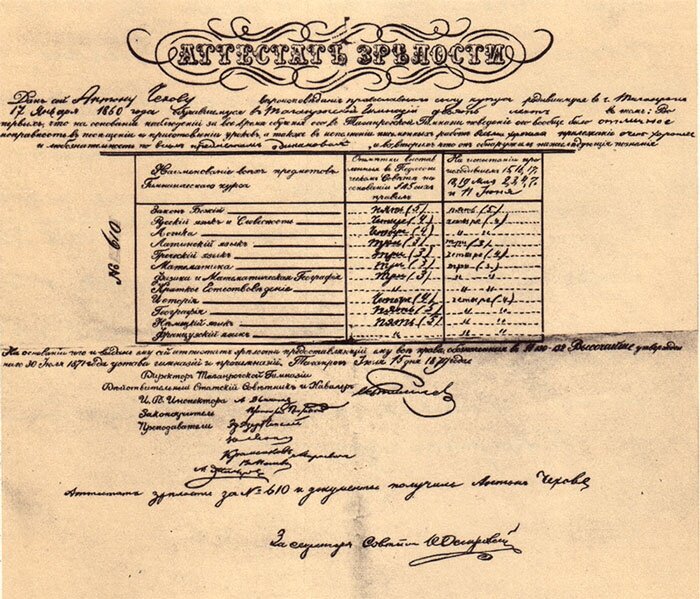 АТТЕСТАТЪ ЗРѢЛОСТИ
Данъ сей Антону Чехову вѣроисповѣданія православнаго, сыну купца, родившемуся въ г. Таганрогѣ
17 Января 1860 года, обучавшемуся въ Таганрогской гимназіи
поведеніе его вообще было отличное
исправность въ посѣщеніи и приготовленіи уроковъ, а также въ исполненіи письменныхъ работъ весьма хорошая, прилежаніе очень хорошее
и любознательность по всѣмъ предметамъ одинаковая, и вовторыхъ что онъ обнаружилъ нижеслѣдующія познанія
№ 610
Наименованіе всѣхъ предметовъ Гимназическаго курса
Отмѣтки выставленныя въ Педагогическомъ Совѣтѣ на основаніи § 45 сихъ правилъ
На испытаніи происходившемъ 15, 16, 17, 18, 19 Мая 2, 3, 4, 7 и 11 Іюня
Законъ Божій пять (5) пять (5)
Русскій языкъ и Словесность четыре (4) четыре (4)
Логика четыре (4) " "
Латинскій языкъ три (3) три (3)
Греческій языкъ три (3) четыре (4)
Математика три (3) три (3)
Физика и Математическая Географія три (3) " "
Краткое Естествовѣденіе " " " "
Исторія четыре (4) четыре (4)
Географія пять (5) " "
Нѣмецкій языкъ пять (5) " "
Французскій языкъ " " " "
На основаніи чего и выданъ ему сей аттестатъ зрѣлости предоставляющій ему всѣ права, обозначенныя въ Высочайше утвержден
наго 30 Іюля 1871 года устава гимназій и прогимназій. Таганрогъ Іюня 15 дня 1879 года
Директоръ Таганрогской Гимназіи
Дѣйствительный Статскій Совѣтникъ и Кавалеръ
И. О. Инспектора А. Дьяконовъ
Законоучитель
Преподаватели
Аттестатъ зрѣлости за № 610 и документы получилъ Антонъ Чеховъ
За секретаря Совѣта